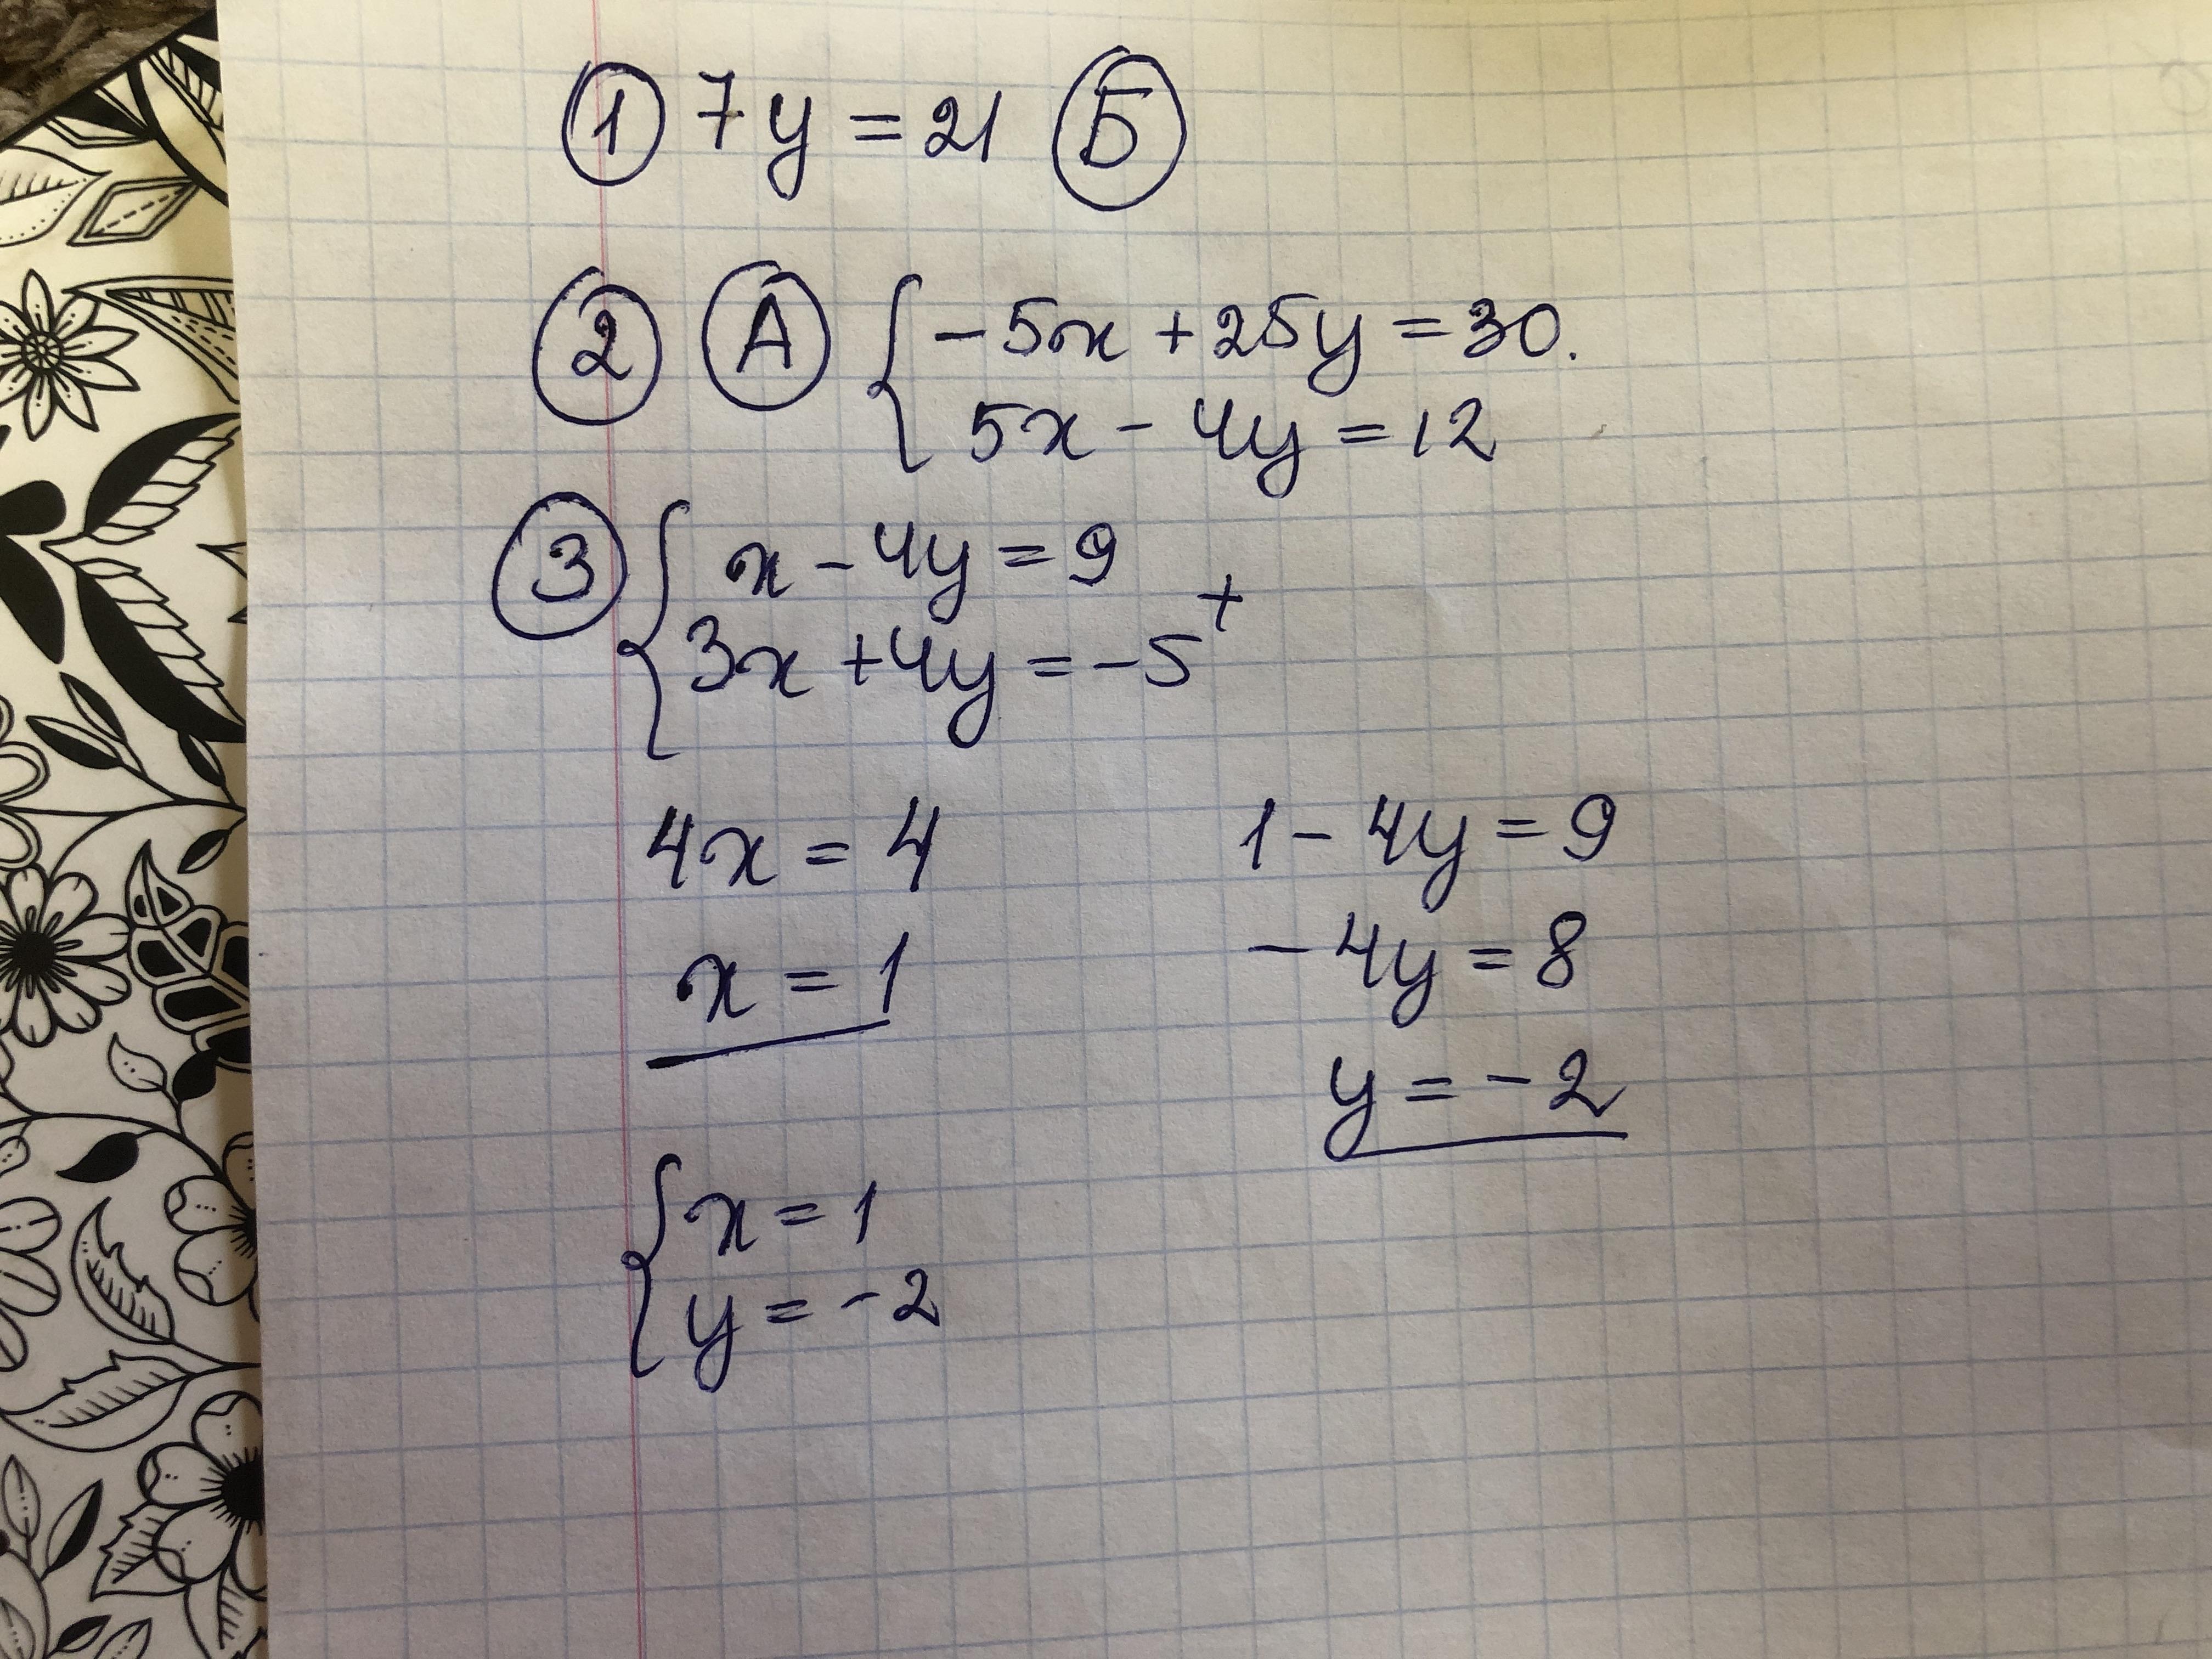 ① 7y = 21 Ⓑ
② Ⓐ { -5x + 25y = 30.
5x - 4y = 12
③ { x - 4y = 9
+
3x + 4y = -5
4x = 4 1 - 4y = 9
x = 1 -4y = 8
y = -2
{ x = 1
y = -2